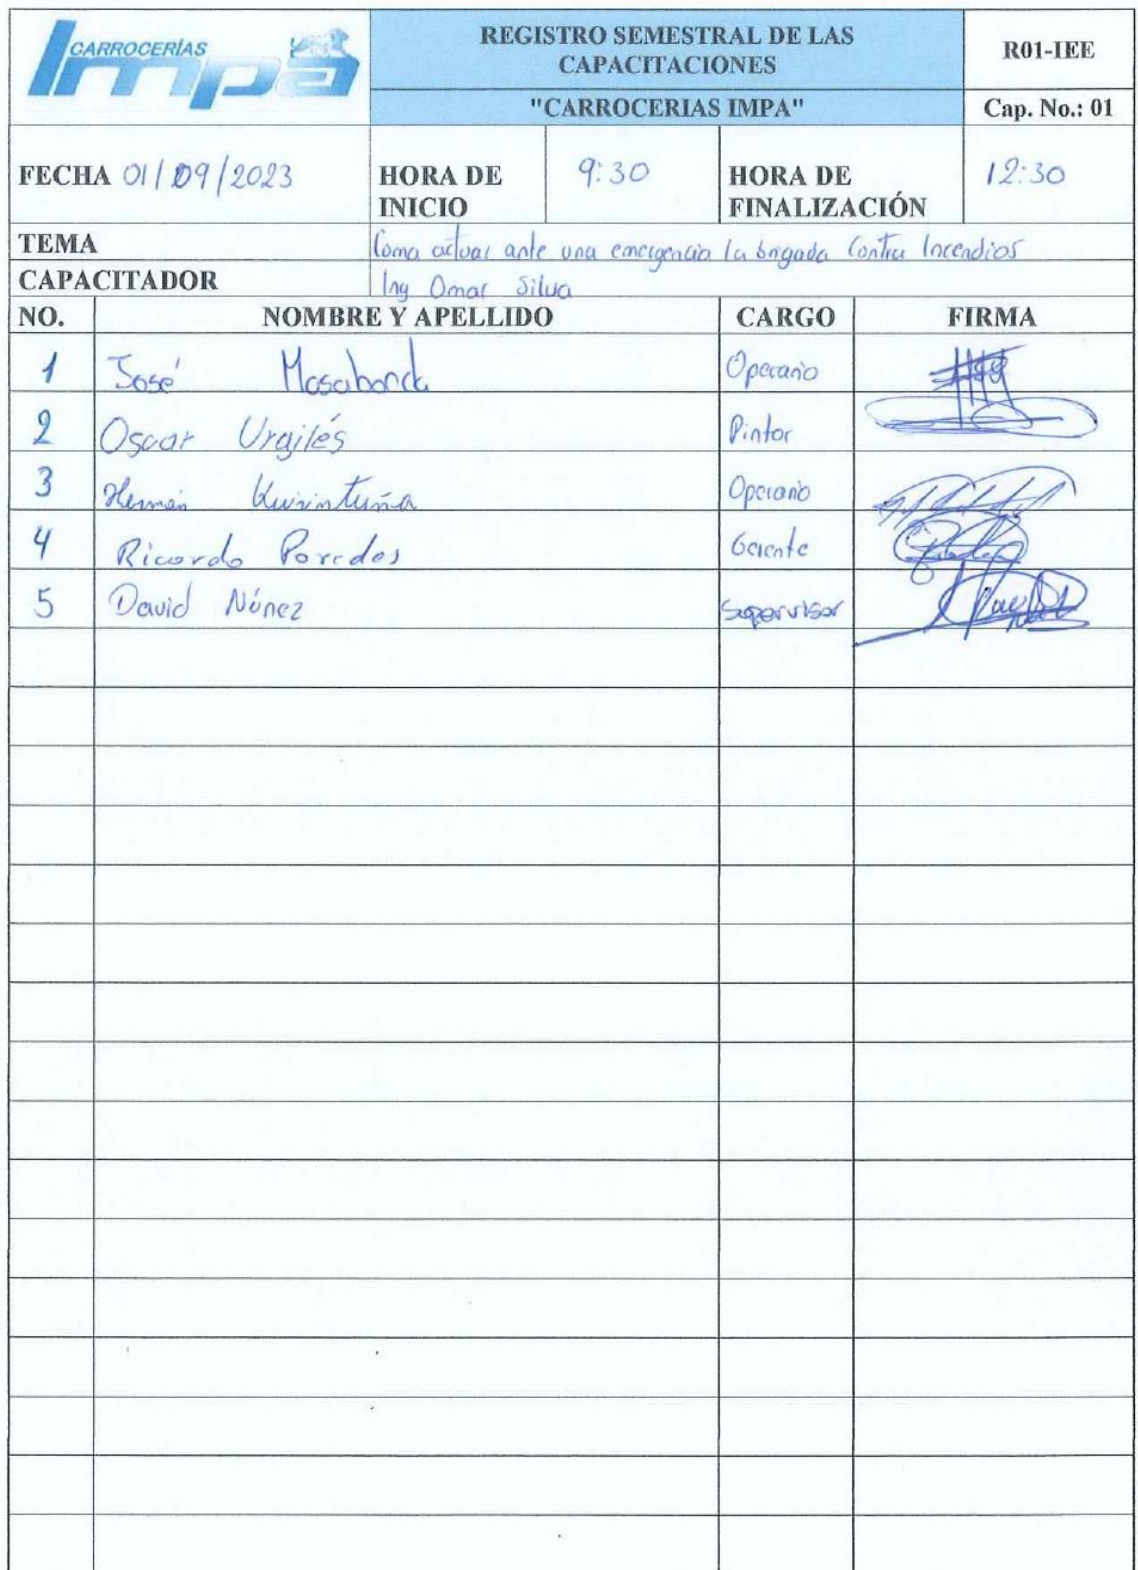 CARROCERÍAS
Impa
REGISTRO SEMESTRAL DE LAS
CAPACITACIONES
R01-IEE
"CARROCERIAS IMPA"
Cap. No.: 01
FECHA 01/09/2023
HORA DE
INICIO
9:30
HORA DE
FINALIZACIÓN
12:30
TEMA Como actuar ante una emergencia la brigada Contra Incendios
CAPACITADOR Ing Omar Silva
NO. NOMBRE Y APELLIDO CARGO FIRMA
1 José Masabanda Operario
2 Oscar Urgilés Pintor
3 Hernán Operario
4 Ricardo Paredes Gerente
5 David Núnez Supervisor